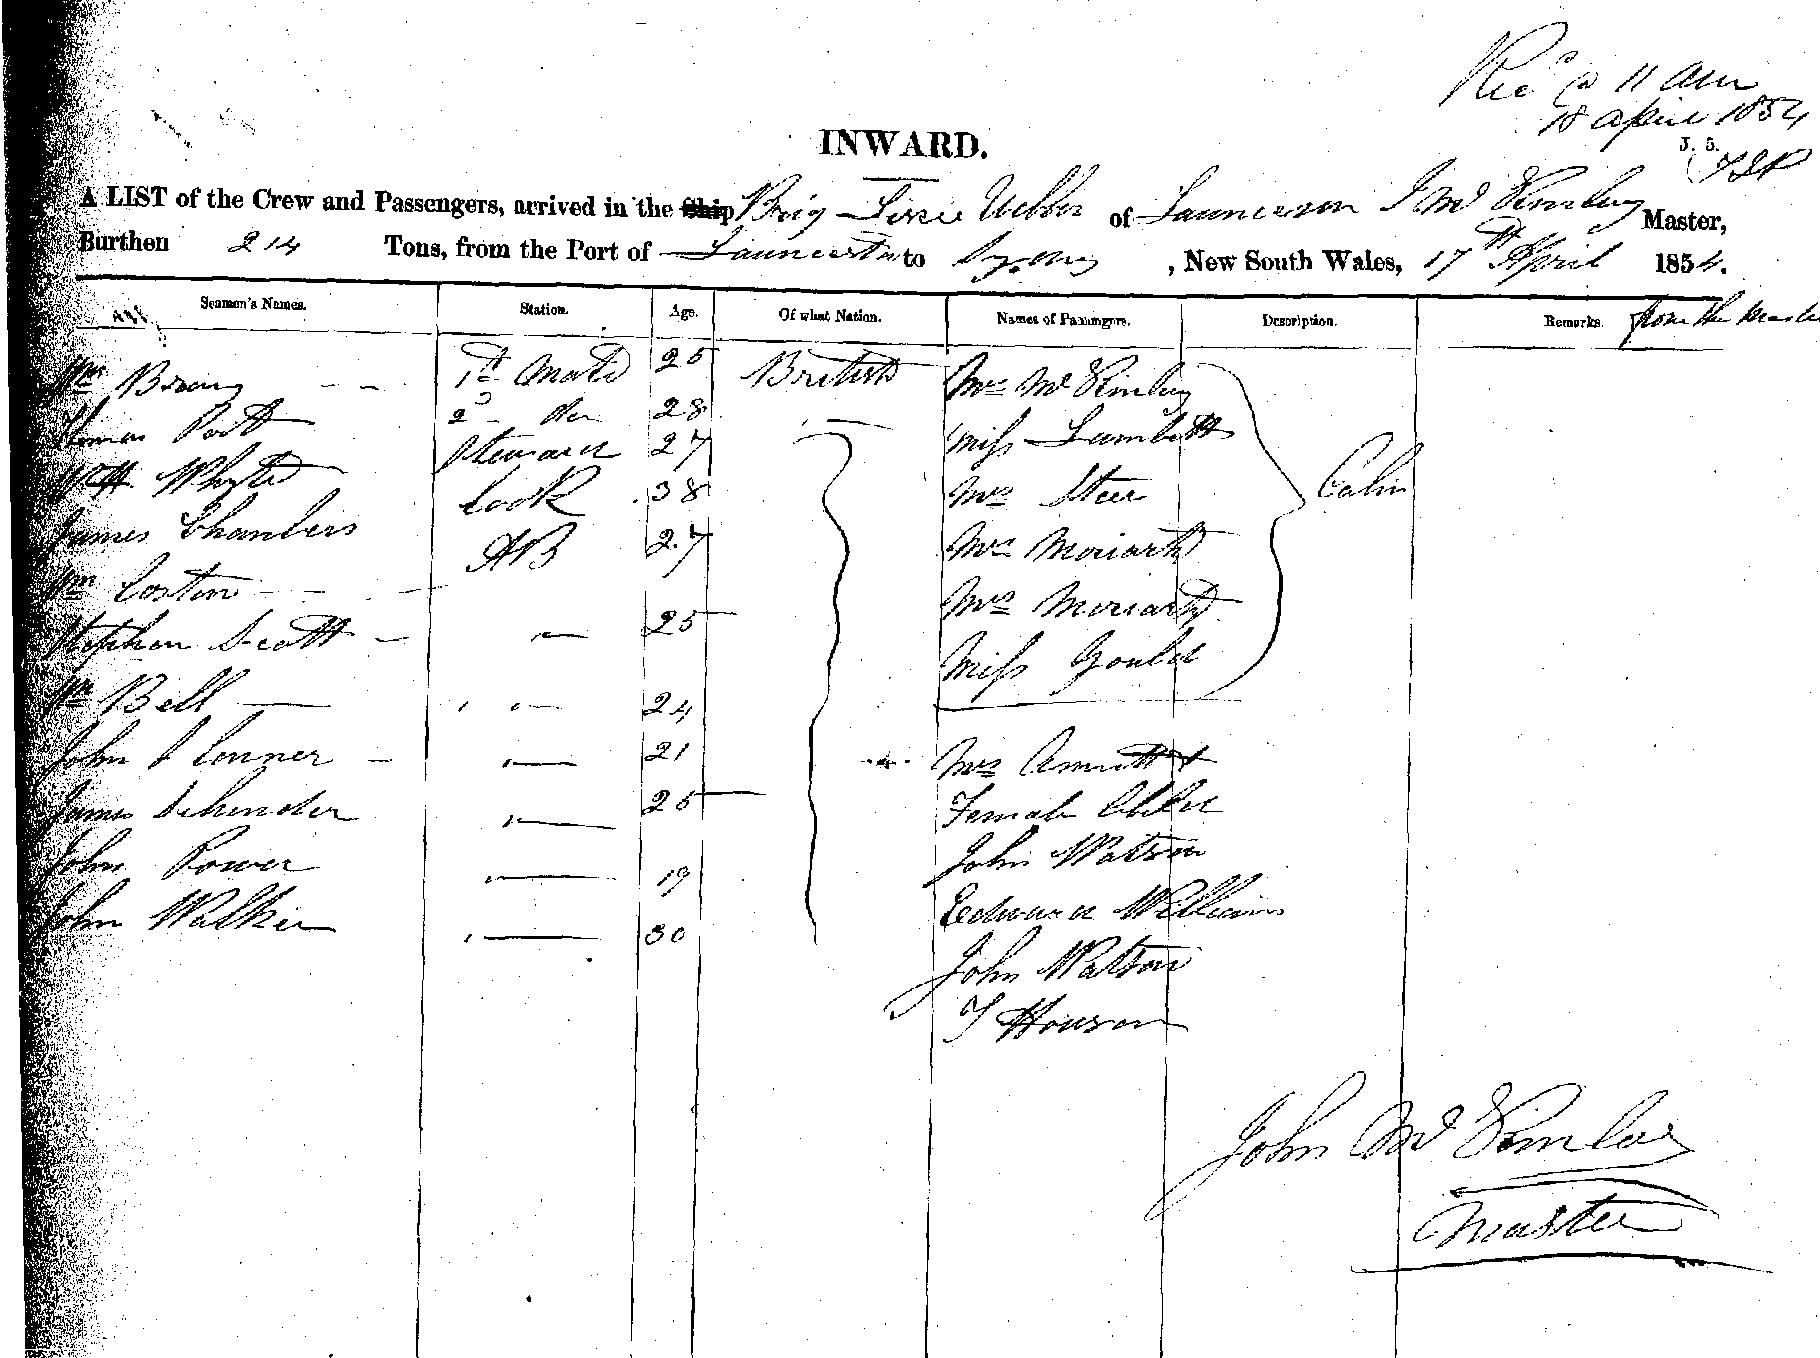 Recd @ 11 am
18 April 1854
J. 5.
INWARD.
A LIST of the Crew and Passengers, arrived in the Ship Brig Webber of Launceston J Mc Kinlay Master,
Burthen 214 Tons, from the Port of Launceston to Sydney , New South Wales, 17th April 1854.
Seamen's Names. Station. Age. Of what Nation. Names of Passengers. Description. Remarks. from the Master
Wm Brown 1st Mate 25 British Mrs Mc Kinlay
Thomas Pott 2d do 28 Miss Lambert
Whyte Steward 27 Mrs Steer Cabin
James Chambers Cook 38 Mrs Moriarty
Wm Costin AB 27 Mrs Moriarty
Stephen Scott 25 Miss Gould
Wm Bell " 24
John Conner " 21 Mrs
James " 25 Female Child
John Power " 19 John Watson
John Walker " 30 Edward Williams
John Watson
J Houson
John Mc Kinlay
Master